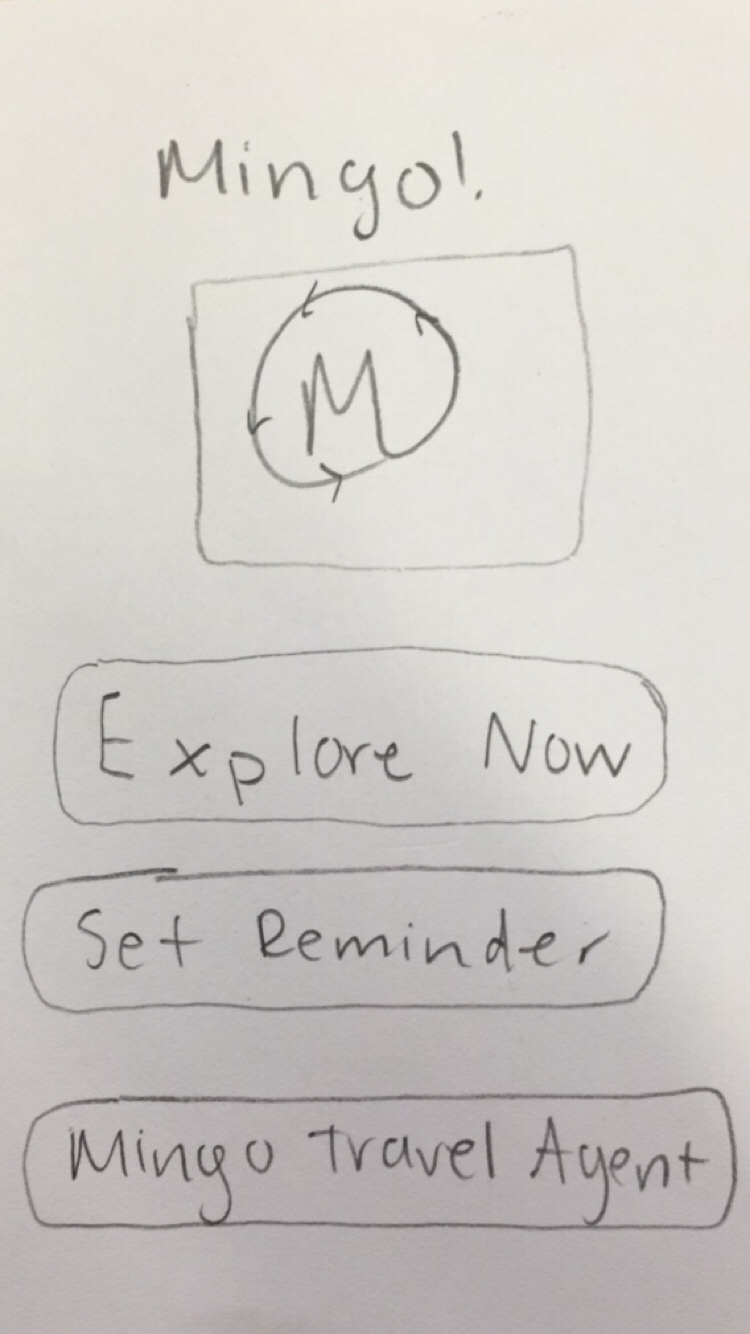 Mingo!
M
Explore Now
Set Reminder
Mingo Travel Agent